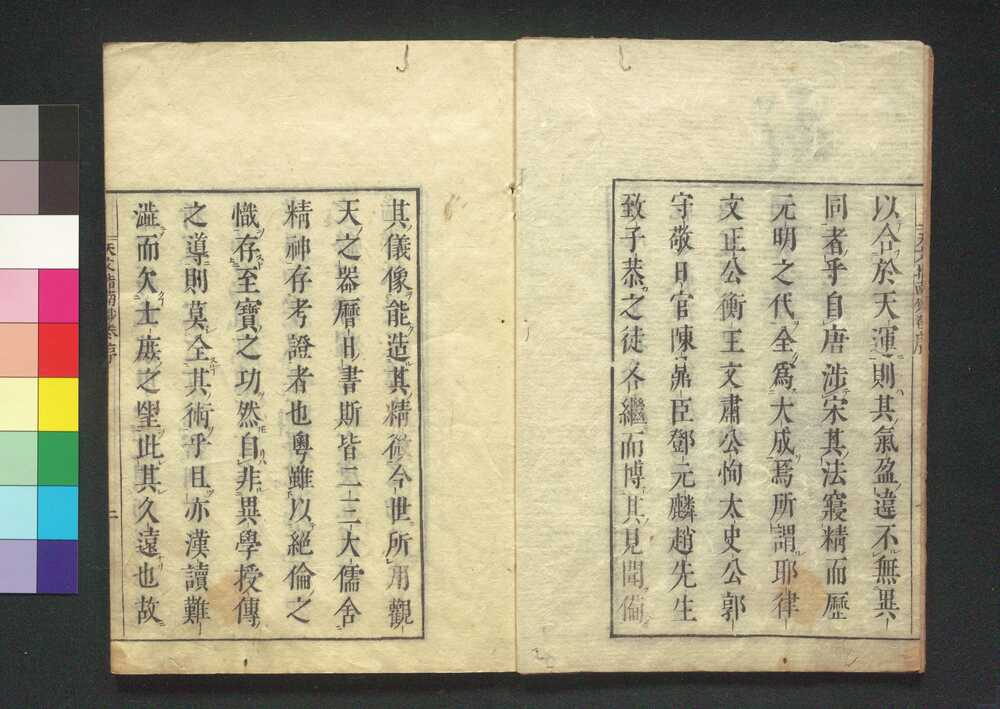 以合於天運則其氣盈違不無異
同者乎自唐涉宋其法寖精而歷
元明之代全爲大成焉所謂耶律
文正公衡王文肅公恂太史公郭
守敬日官陳鼎臣鄧元麟趙先生
致子恭之徒各繼而博其見聞備
其儀像能造其精微今世所用觀
天之器曆日書斯皆二三大儒舍
精神存考證者也粤雖以絕倫之
幟存至寶之功然自非異學授傳
之導則莫全其術乎且亦漢讀難
澁而欠士族之望此其久遠也故
天文指南抄卷序
二